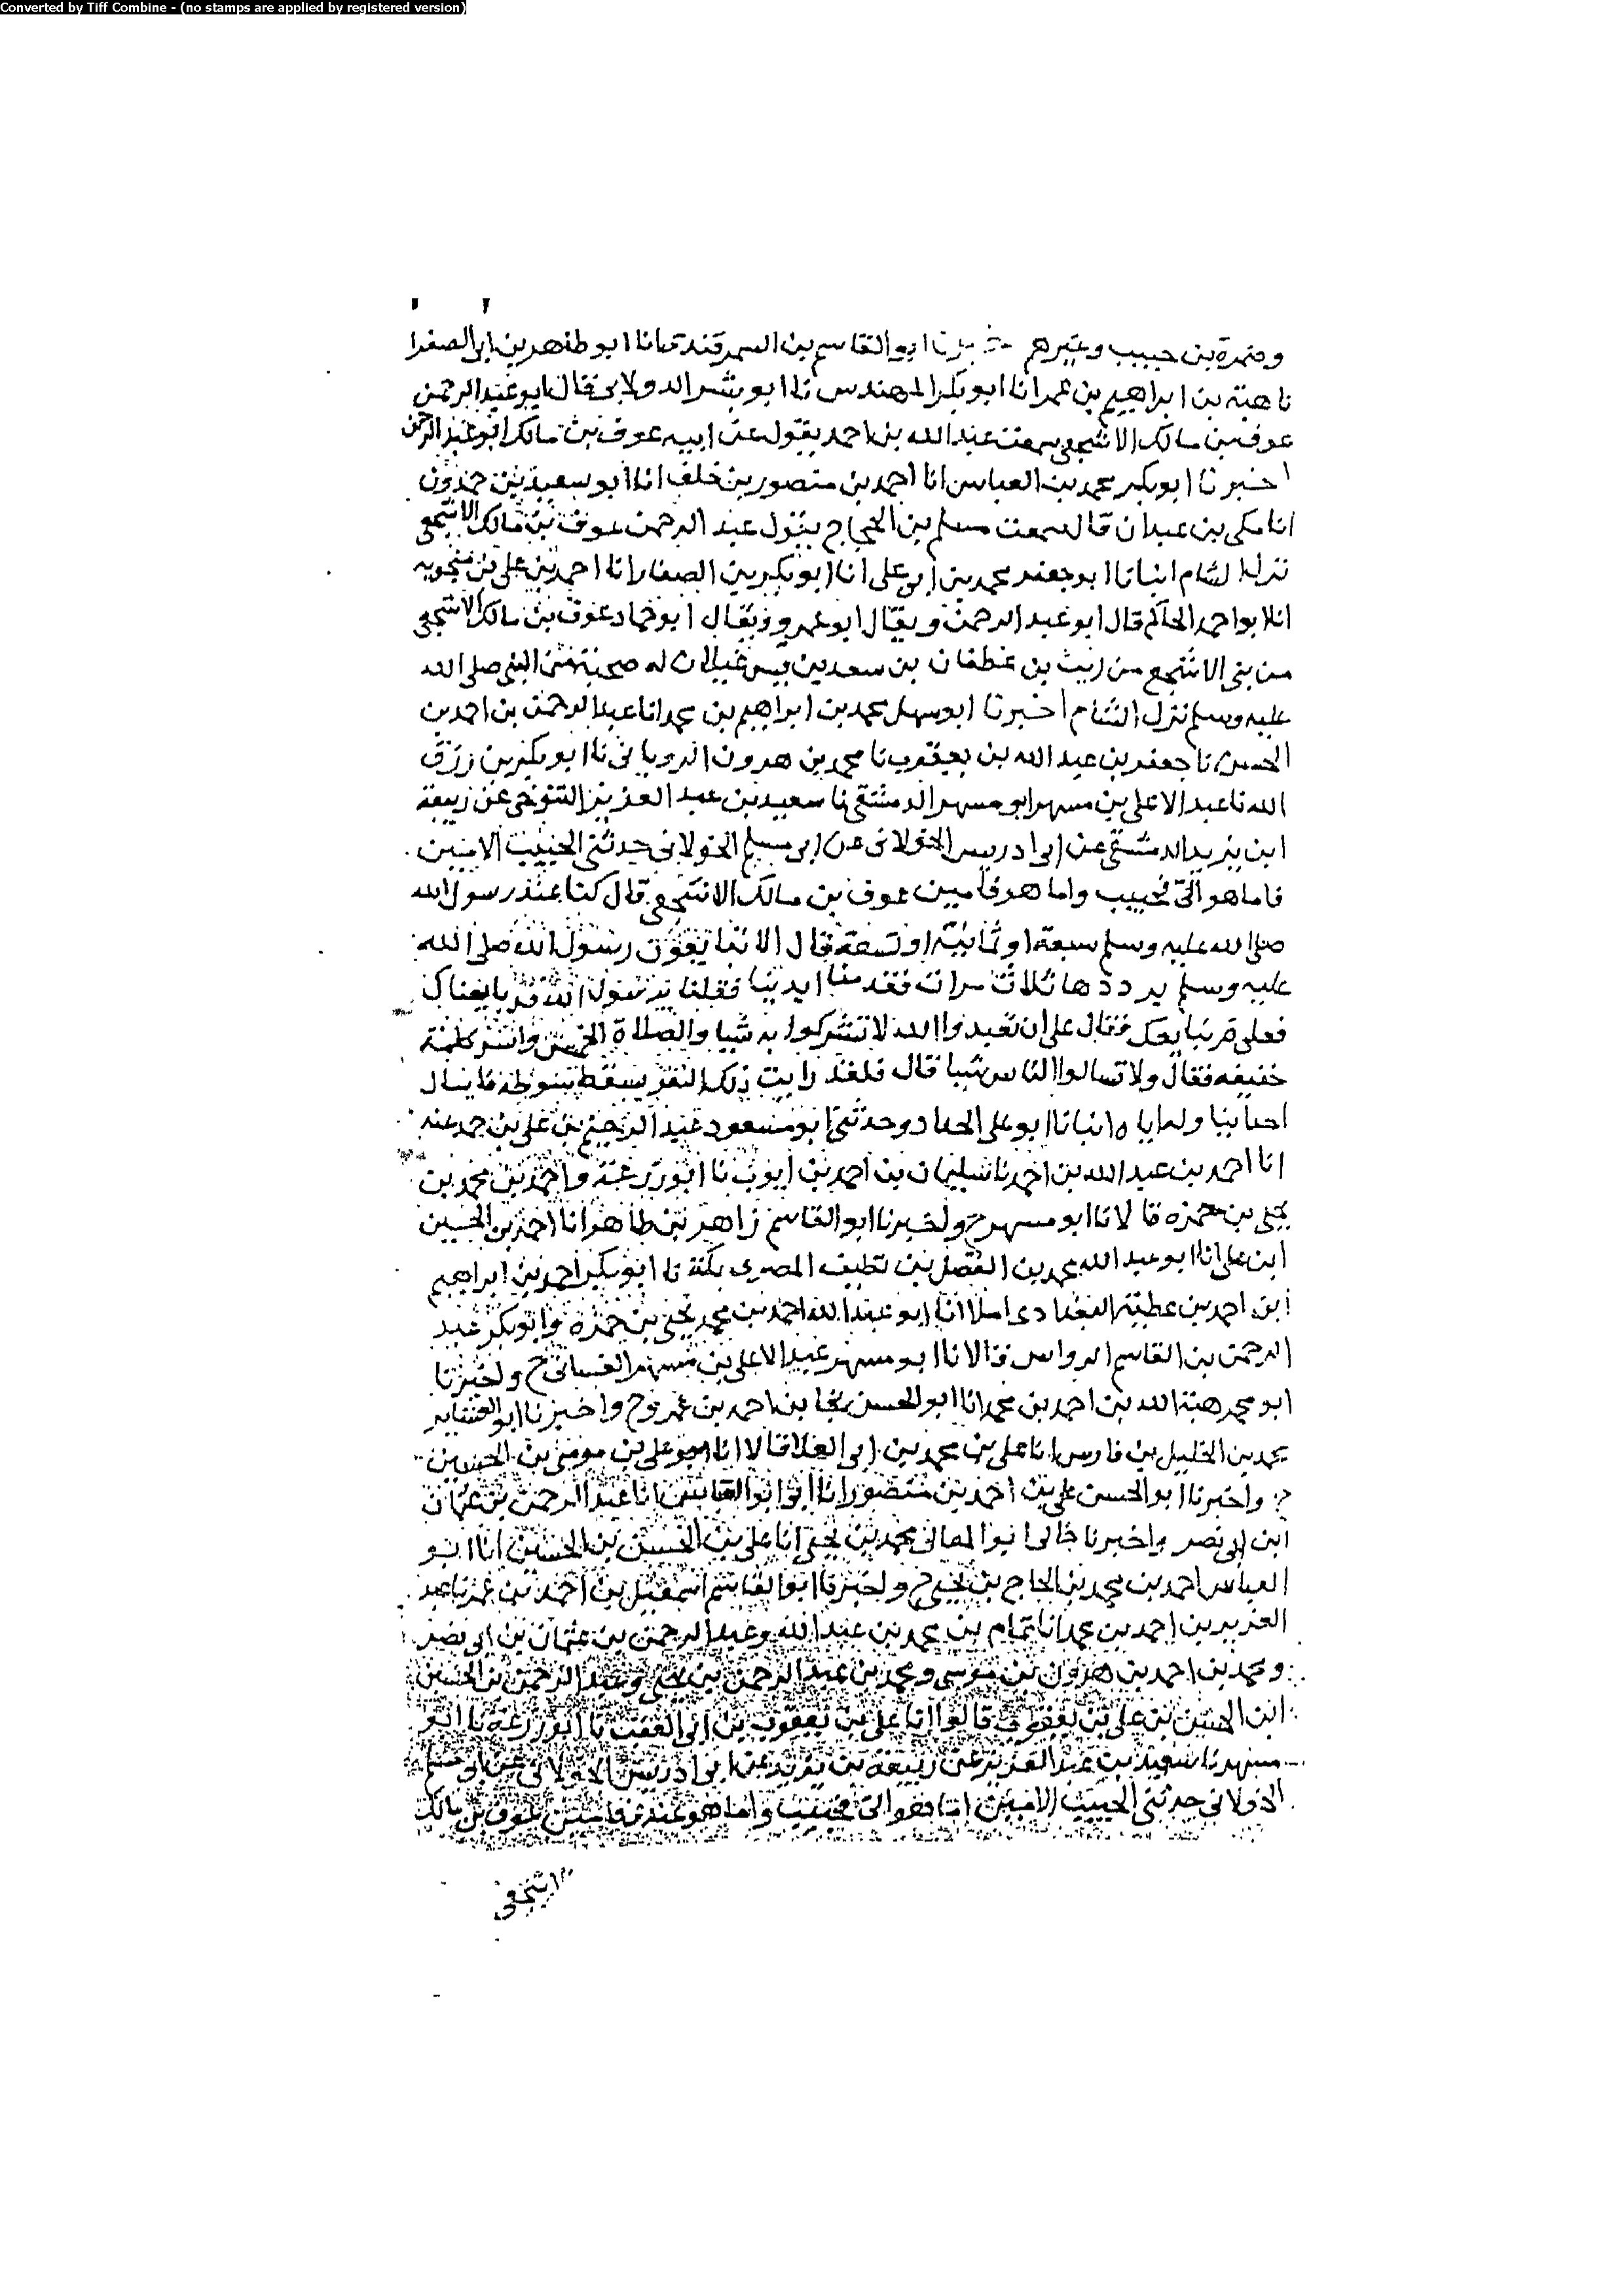 Converted by Tiff Combine - (no stamps are applied by registered version)
وضمرة بن حبيب وغيرهم اخبرنا ابو القاسم بن السمرقندي انا ابو طاهر بن ابي الصقر
نا هبة بن ابراهيم بن عمر انا ابو بكر المهندس نا ابو بشر الدولابي قال ابو عبد الرحمن
عوف بن مالك الاشجعي سمعت عبد الله بن احمد يقول عن ابيه عوف بن مالك ابو عبد الرحمن
اخبرنا ابو بكر محمد بن العباس انا احمد بن منصور بن خلف انا ابو سعيد بن حمدون
انا مكي بن عبدان قال سمعت مسلم بن الحجاج يقول عبد الرحمن عوف بن مالك الاشجعي
نزل الشام انبانا ابو جعفر محمد بن ابي علي انا ابو بكر بن الصفار انا احمد بن علي بن منجويه
انا ابو احمد الحاكم قال ابو عبد الرحمن ويقال ابو عمرو ويقال ابو حماد عوف بن مالك الاشجعي
من بني الاشجع من ريث بن غطفان بن سعد بن قيس غيلان له صحبة من النبي صلى الله
عليه وسلم نزل الشام اخبرنا ابو سهل محمد بن ابراهيم بن محمد انا عبد الرحمن بن احمد بن
الحسن نا جعفر بن عبد الله بن يعقوب نا محمد بن هرون الروياني نا ابو بكر بن رزق
الله نا عبد الاعلى بن مسهر ابو مسهر الدمشقي نا سعيد بن عبد العزيز التنوخي عن ربيعة
ابن يزيد الدمشقي عن ابي ادريس الخولاني عن ابي مسلم الخولاني حدثني الحبيب الامين
فاما هو الي فحبيب واما هو فامين عوف بن مالك الاشجعي قال كنا عند رسول الله
صلى الله عليه وسلم سبعة او ثمانية او تسعة فقال الا تبايعون رسول الله صلى الله
عليه وسلم يرددها ثلاث مرات فقدمنا ايدينا فقلنا يرسول الله قد بايعناك
فعلى نبايعك فقال على ان تعبدوا الله لا تشركوا به شيا والصلاة الخمس واسر كلمة
خفيفه فقال ولا تسالوا الناس شيا قال فلقد رايت ذلك النفر يسقط سوطه فما يسال
احدا يناوله اياه انبانا ابو علي الحداد وحدثني ابو مسعود عبد الرحيم بن علي بن حمد عنه
انا احمد بن عبد الله بن احمد نا سليمان بن احمد بن ايوب نا ابو زرعة واحمد بن محمد بن
يحيى بن حمزه قالا نا ابو مسهر ح واخبرنا ابو القاسم زاهر بن طاهر انا احمد بن الحسين
ابن علي انا ابو عبد الله محمد بن الفضل بن نظيف المصري بمكة نا ابو بكر احمد بن ابراهيم
ابن احمد بن عطية البغدادي املا انا ابو عبد الله احمد بن محمد يحيى بن حمزة وابو بكر عبد
الرحمن بن القاسم الرواس قالا نا ابو مسهر عبد الاعلى بن مسهر الغساني ح واخبرنا
ابو محمد هبة الله بن احمد بن محمد انا ابو الحسن نجا بن احمد بن عمرو ح واخبرنا ابو العشاير
محمد بن الخليل بن فارس انا علي بن محمد بن ابي العلا قالا انا ابو علي بن موسى بن الحسين
ح واخبرنا ابو الحسن علي بن احمد بن منصور انا ابو العباس انا عبد الرحمن بن عثمان
ابن ابي نصر واخبرنا خالي ابو المعالي محمد بن يحيى انا علي بن الحسن بن الحسين انا ابو
العباس احمد بن محمد بن الحاج بن يحيى ح واخبرنا ابو القاسم اسمعيل بن احمد بن عمر نا عبد
العزيز بن احمد بن محمد انا تمام بن محمد بن عبد الله وعبد الرحمن بن عثمان بن ابي نصر
ومحمد بن احمد بن هرون بن موسى ومحمد بن عبد الرحمن بن يحيى وعبد الرحمن بن الحسين
ابن الحسن بن علي بن يعقوب قالوا انا علي بن يعقوب بن ابي العقب نا ابو زرعة نا ابو
مسهر نا سعيد بن عبد العزيز عن ربيعة بن يزيد عن ابي ادريس الخولاني عن ابي مسلم
الخولاني حدثني الحبيب الامين اما هو الي فحبيب واما هو عندي فامين عوف بن مالك
الاشجعي